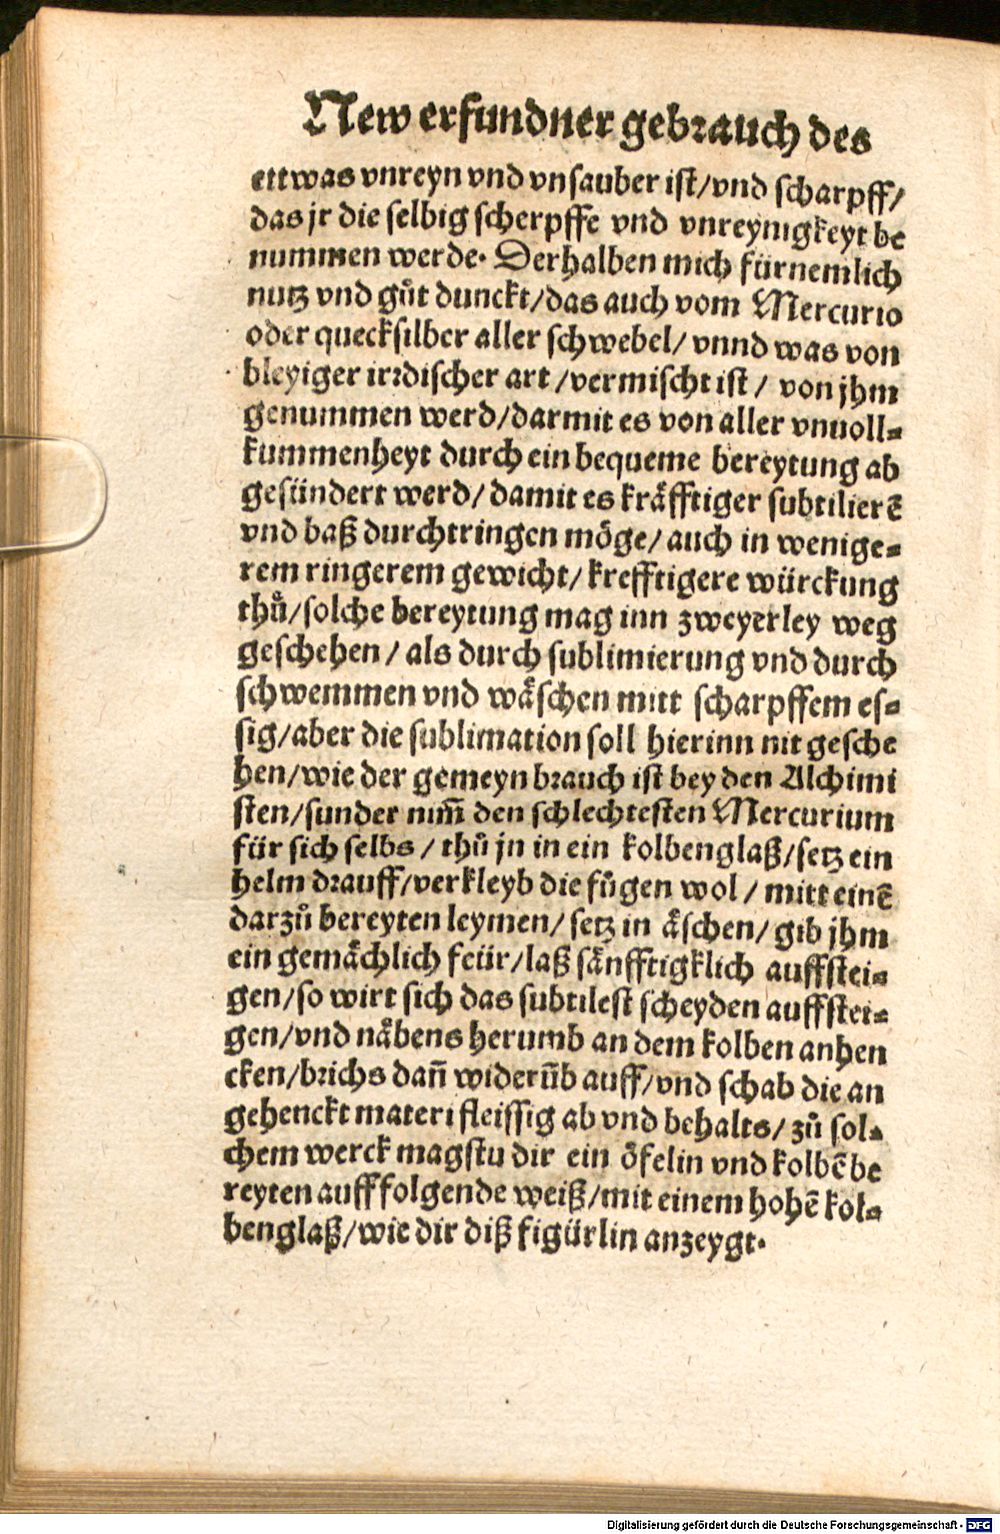 New erfundner gebrauch des
ettwas vnreyn vnd vnsauber ist/vnd scharpff/
das jr die selbig scherpffe vnd vnreynigkeyt be
nummen werde. Derhalben mich fürnemlich
nutz vnd gůt dunckt/das auch vom Mercurio
oder quecksilber aller schwebel/ vnnd was von
bleyiger irrdischer art /vermischt ist / von jhm
genummen werd/darmit es von aller vnuoll⸗
kummenheyt durch ein bequeme bereytung ab
gesündert werd/ damit es kräfftiger subtilierē
vnd baß durchtringen möge/ auch in wenige⸗
rem ringerem gewicht/ krefftigere würckung
thů/solche bereytung mag inn zweyerley weg
geschehen / als durch sublimierung vnd durch
schwemmen vnd wäschen mitt scharpffem es⸗
sig/aber die sublimation soll hierinn nit gesche
hen/wie der gemeyn brauch ist bey den Alchimi
sten/sunder nim̄ den schlechtesten Mercurium
für sich selbs / thů jn in ein kolbenglaß/setz ein
helm drauff/verkleyb die fůgen wol / mitt einē
darzů bereyten leymen/ setz in äschen/ gib jhm
ein gemächlich feür/laß sänfftigklich auffstei⸗
gen/so wirt sich das subtilest scheyden auffstei⸗
gen/vnd näbens herumb an dem kolben anhen
cken/brichs dañ widerūb auff/vnd schab die an
gehenckt materi fleissig ab vnd behalts/ zů sol⸗
chem werck magstu dir ein öfelin vnd kolbē be
reyten auff folgende weiß/mit einem hohē kol⸗
benglaß/wie dir diß figürlin anzeygt.
Digitalisierung gefördert durch die Deutsche Forschungsgemeinschaft - DFG